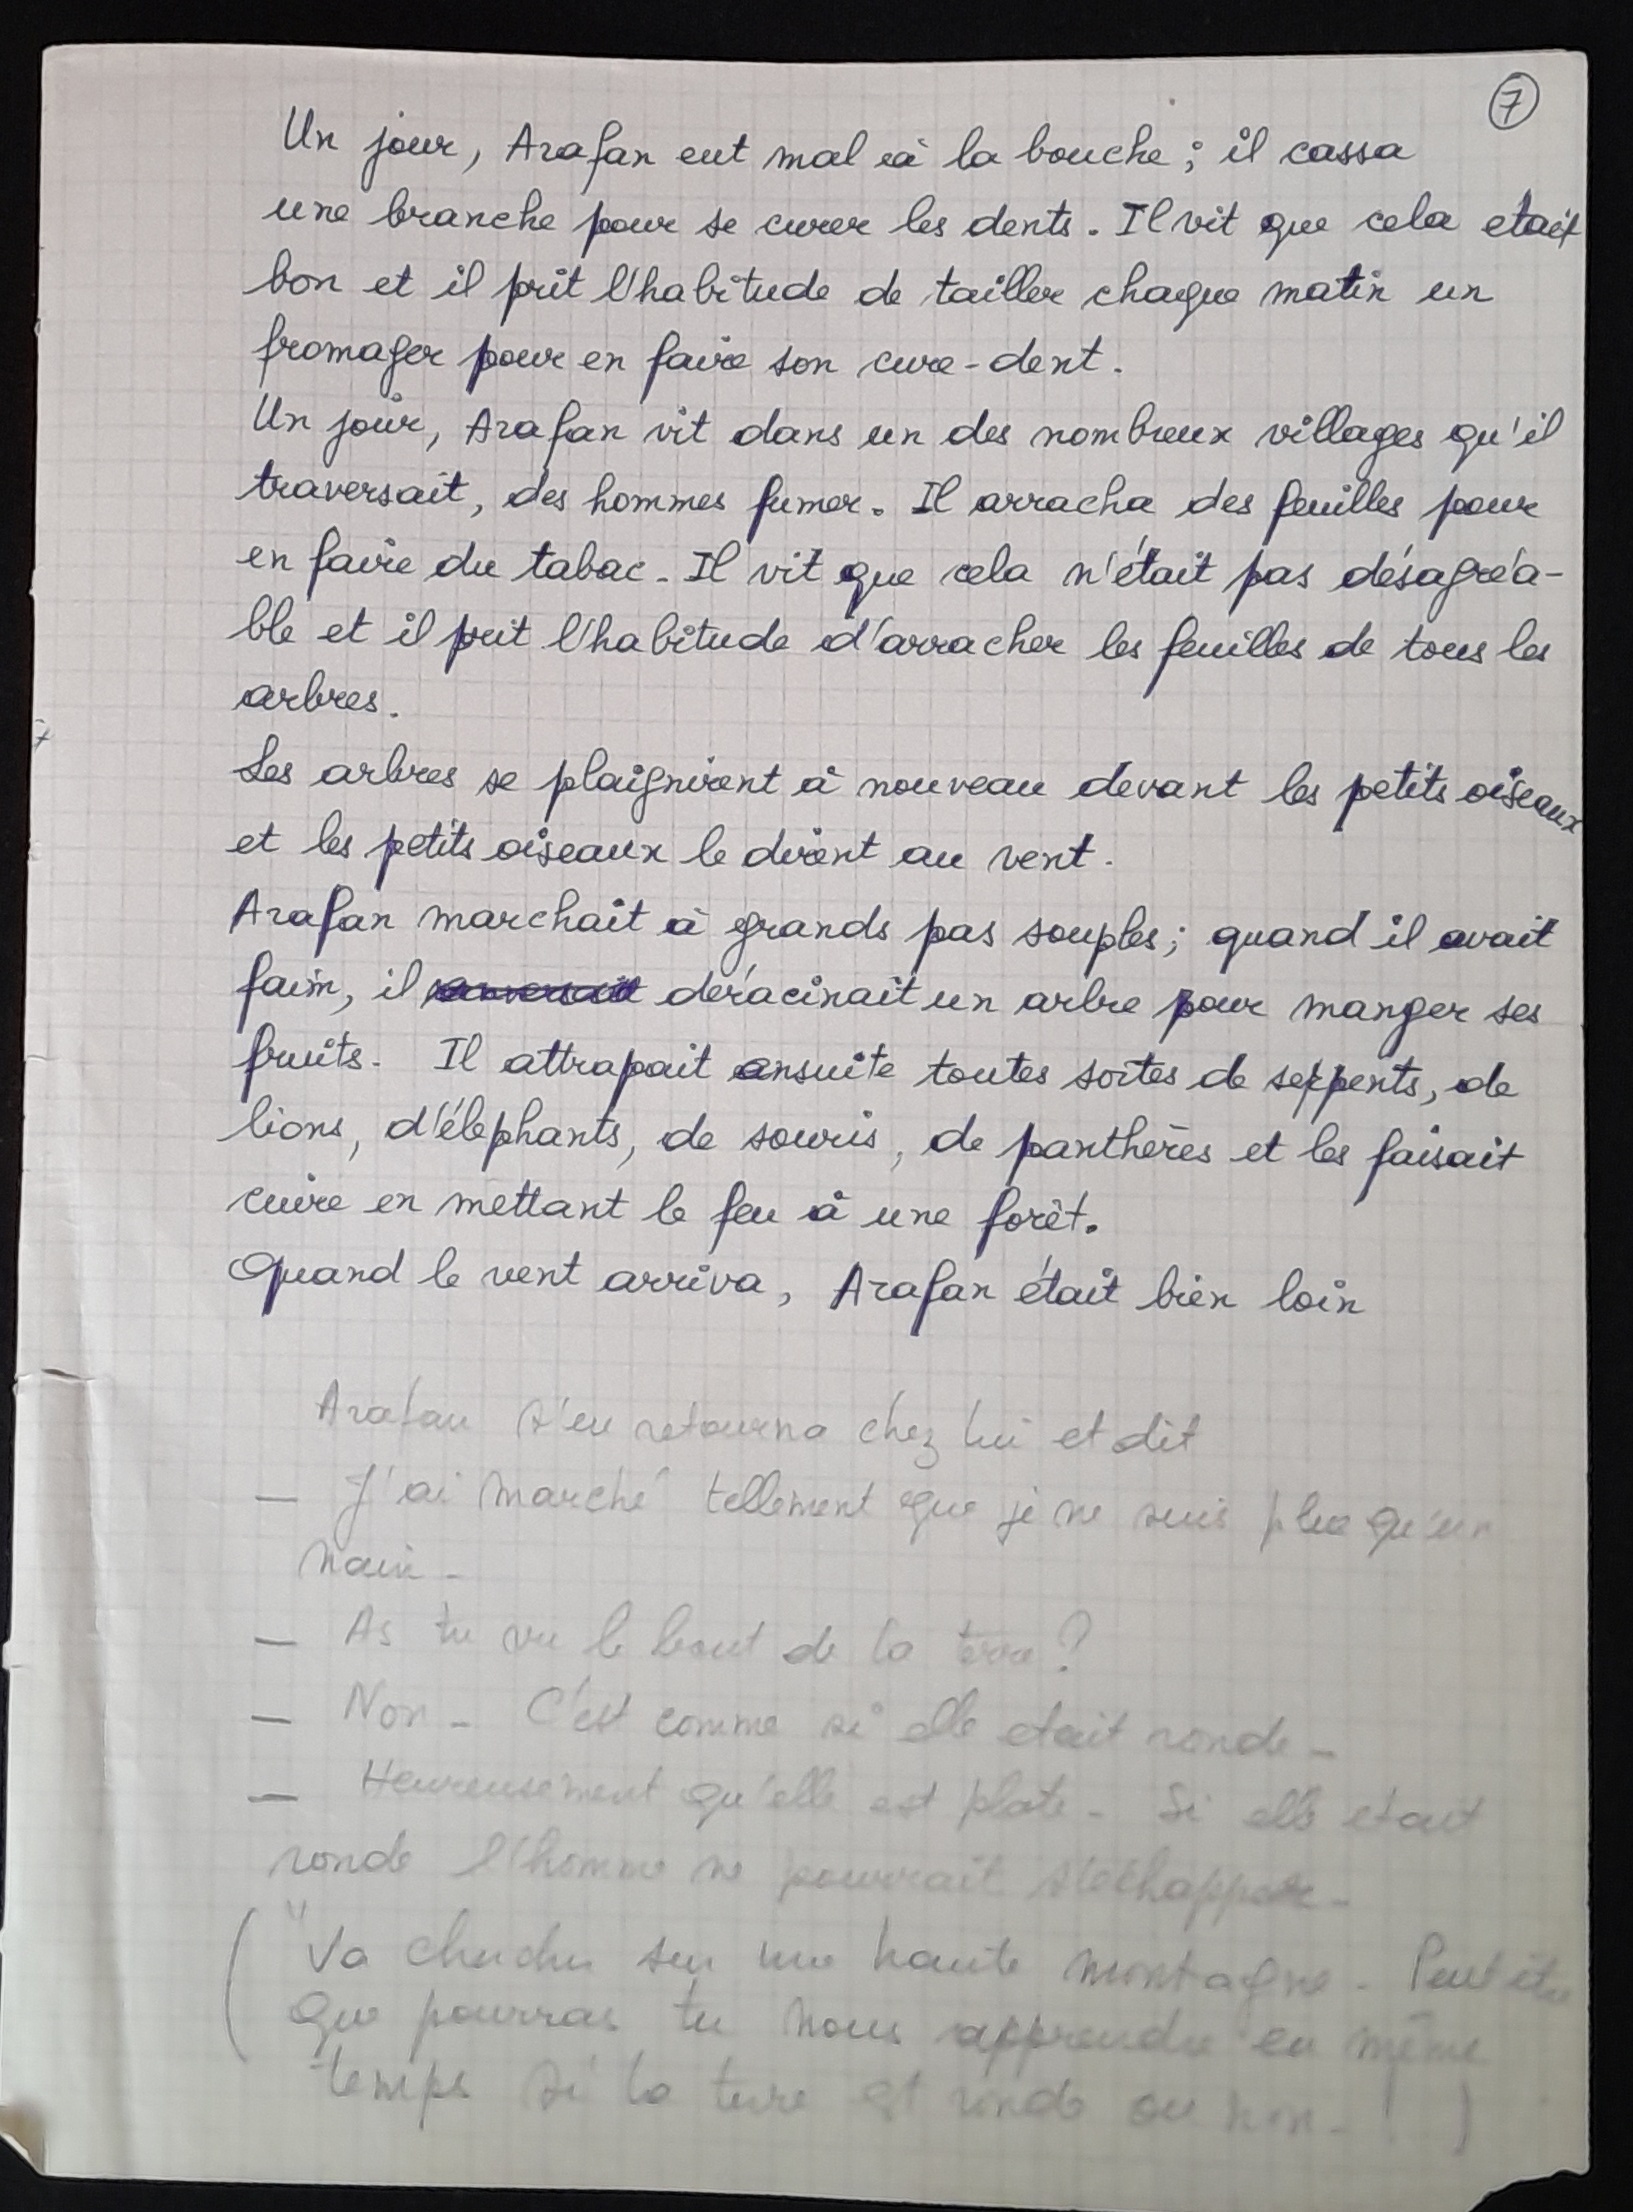 7
Un jour, Arafan eut mal à la bouche ; il cassa
une branche pour se curer les dents. Il vit que cela etait
bon et il prit l'habitude de tailler chaque matin un
fromager pour en faire son cure-dent.
Un jour, Arafan vit dans un des nombreux villages qu'il
traversait, des hommes fumer. Il arracha des feuilles pour
en faire du tabac. Il vit que cela n'était pas désagréa-
ble et il prit l'habitude d'arracher les feuilles de tous les
arbres.
Les arbres se plaignirent à nouveau devant les petits oiseaux
et les petits oiseaux le dirent au vent.
Arafan marchait à grands pas souples ; quand il avait
faim, il déracinait un arbre pour manger ses
fruits. Il attrapait ensuite toutes sortes de serpents, de
lions, d'éléphants, de souris, de panthères et les faisait
cuire en mettant le feu à une forêt.
Quand le vent arriva, Arafan était bien loin
Arafan s'en retourna chez lui et dit
— J'ai marché tellement que je ne suis plus qu'un
nain.
— As tu vu le bout de la terre ?
— Non. C'est comme si elle etait ronde.
— Heureusement qu'elle est plate. Si elle etait
ronde l'homme ne pourrait s'échapper.
( "Va chercher sur une haute montagne. Peut être
que pourras tu nous apprendre en même
temps si la terre est ronde ou non. ! )